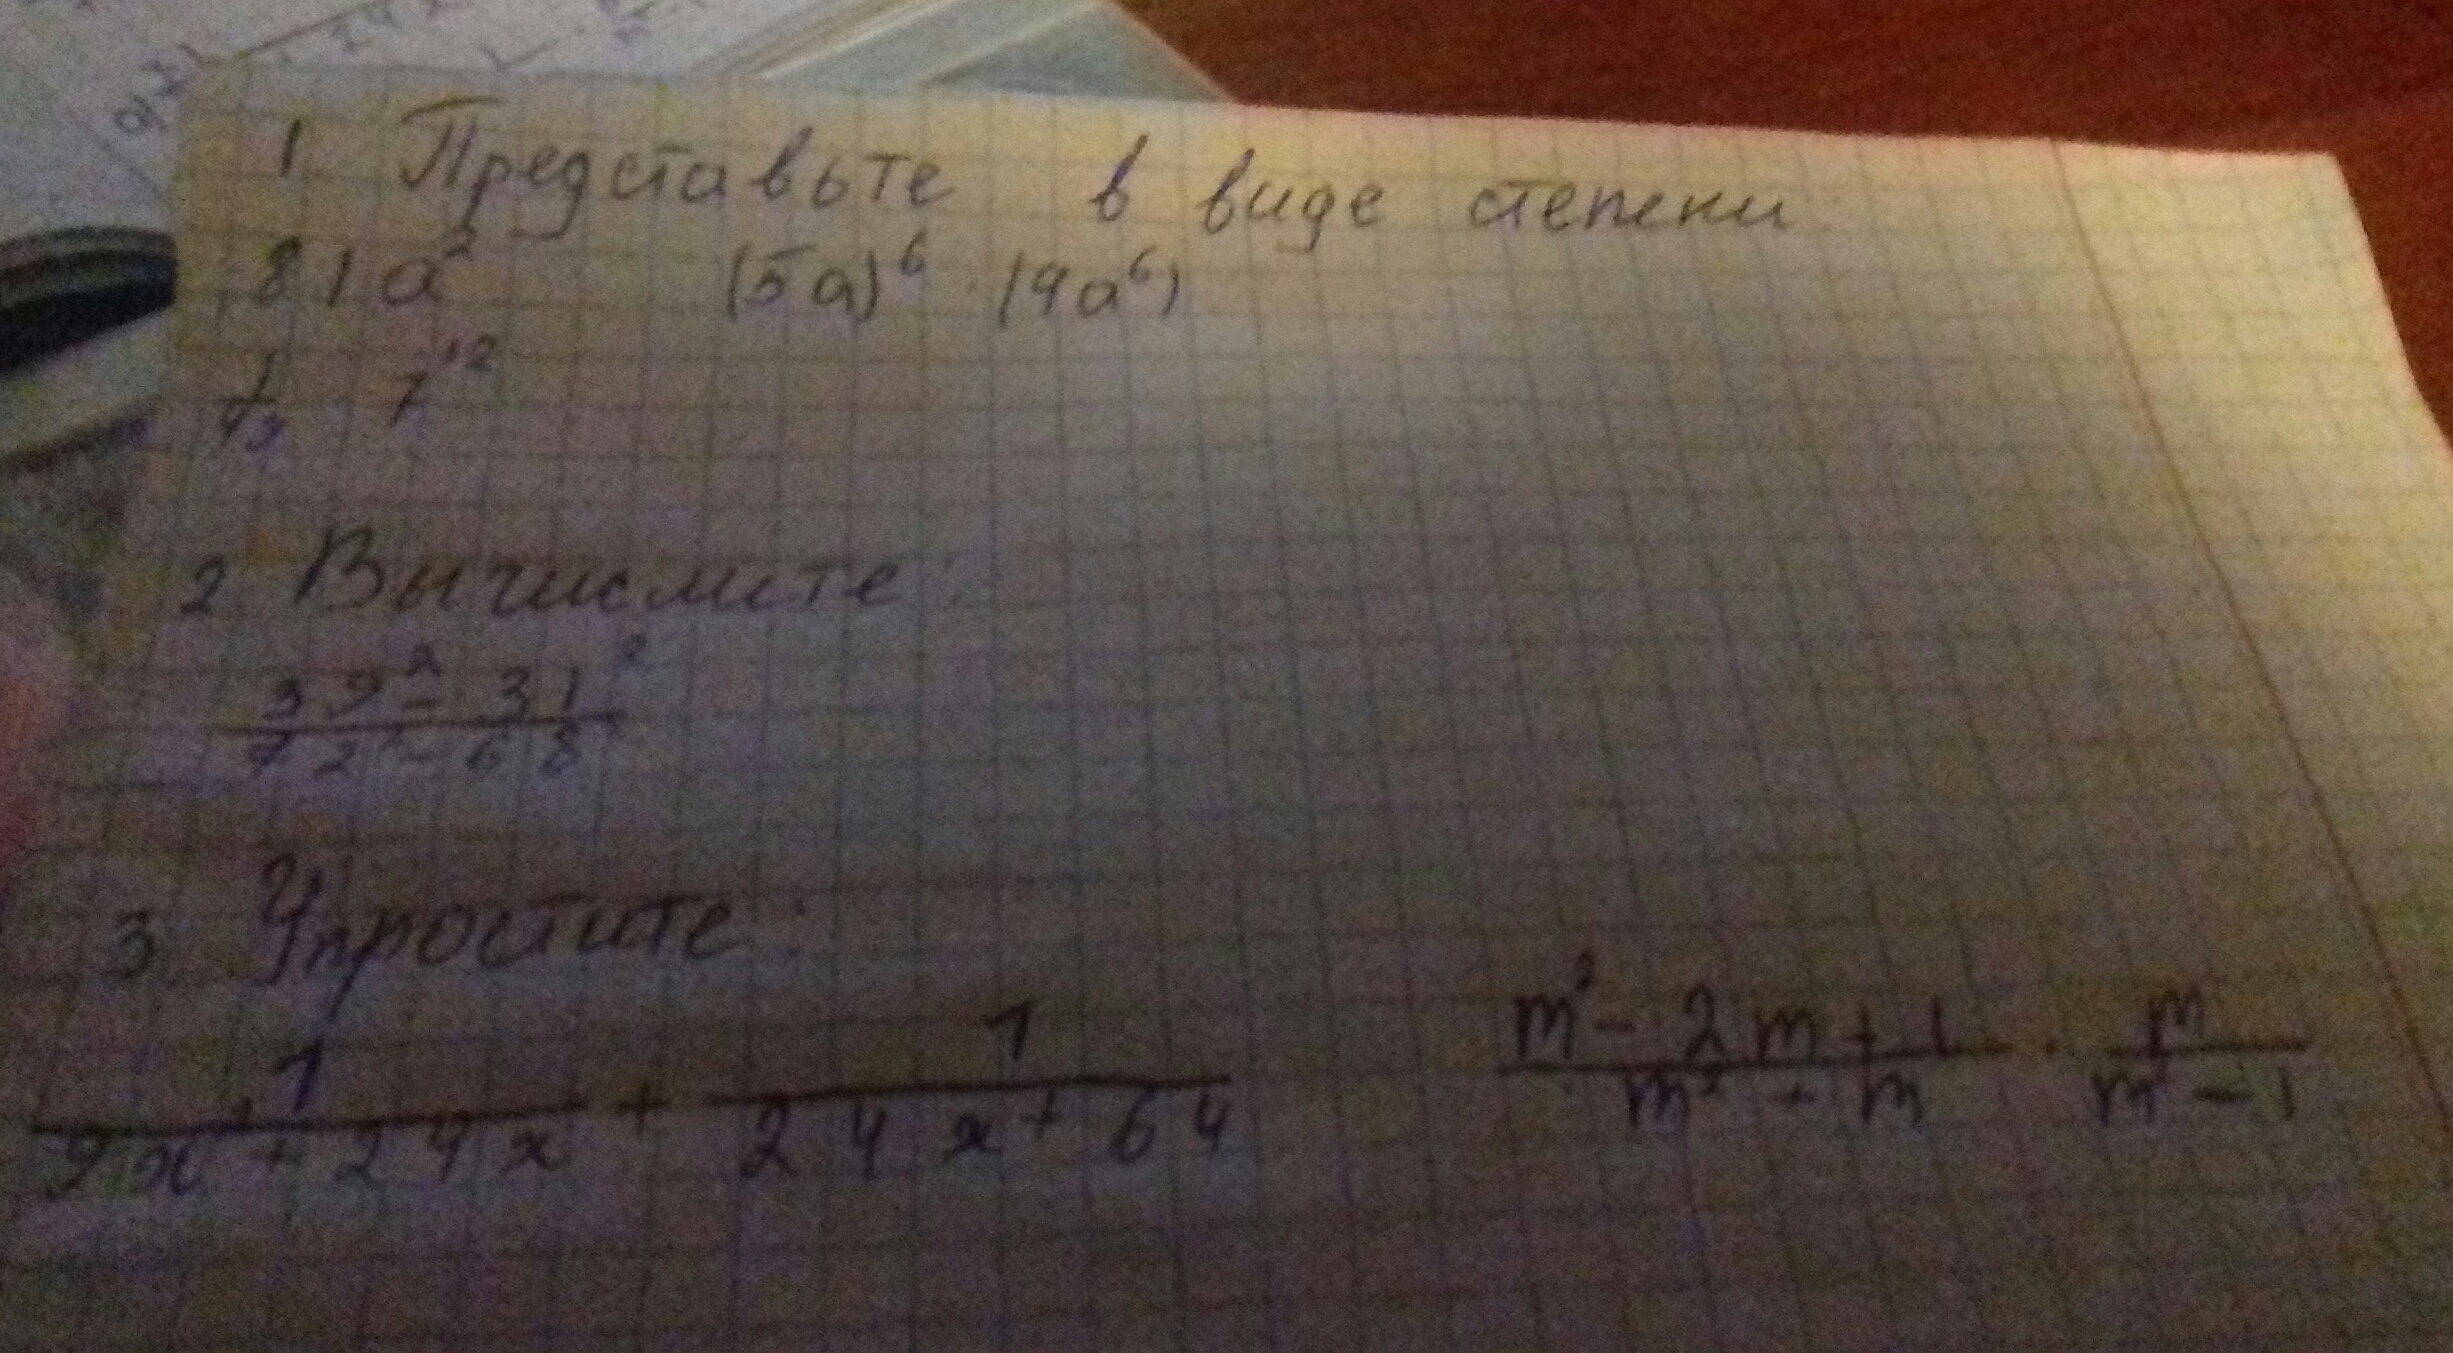 1. Представьте в виде степени
81a² (5a)⁶ · (4a⁶)
1/49 7¹²
2 Вычислите:
(39² - 31²)/(72² - 68²)
3. Упростите:
1/(9x² + 24x) + 1/(24x + 64) (m² - 2m + 1)/(m² + m) · m/(m² - 1)